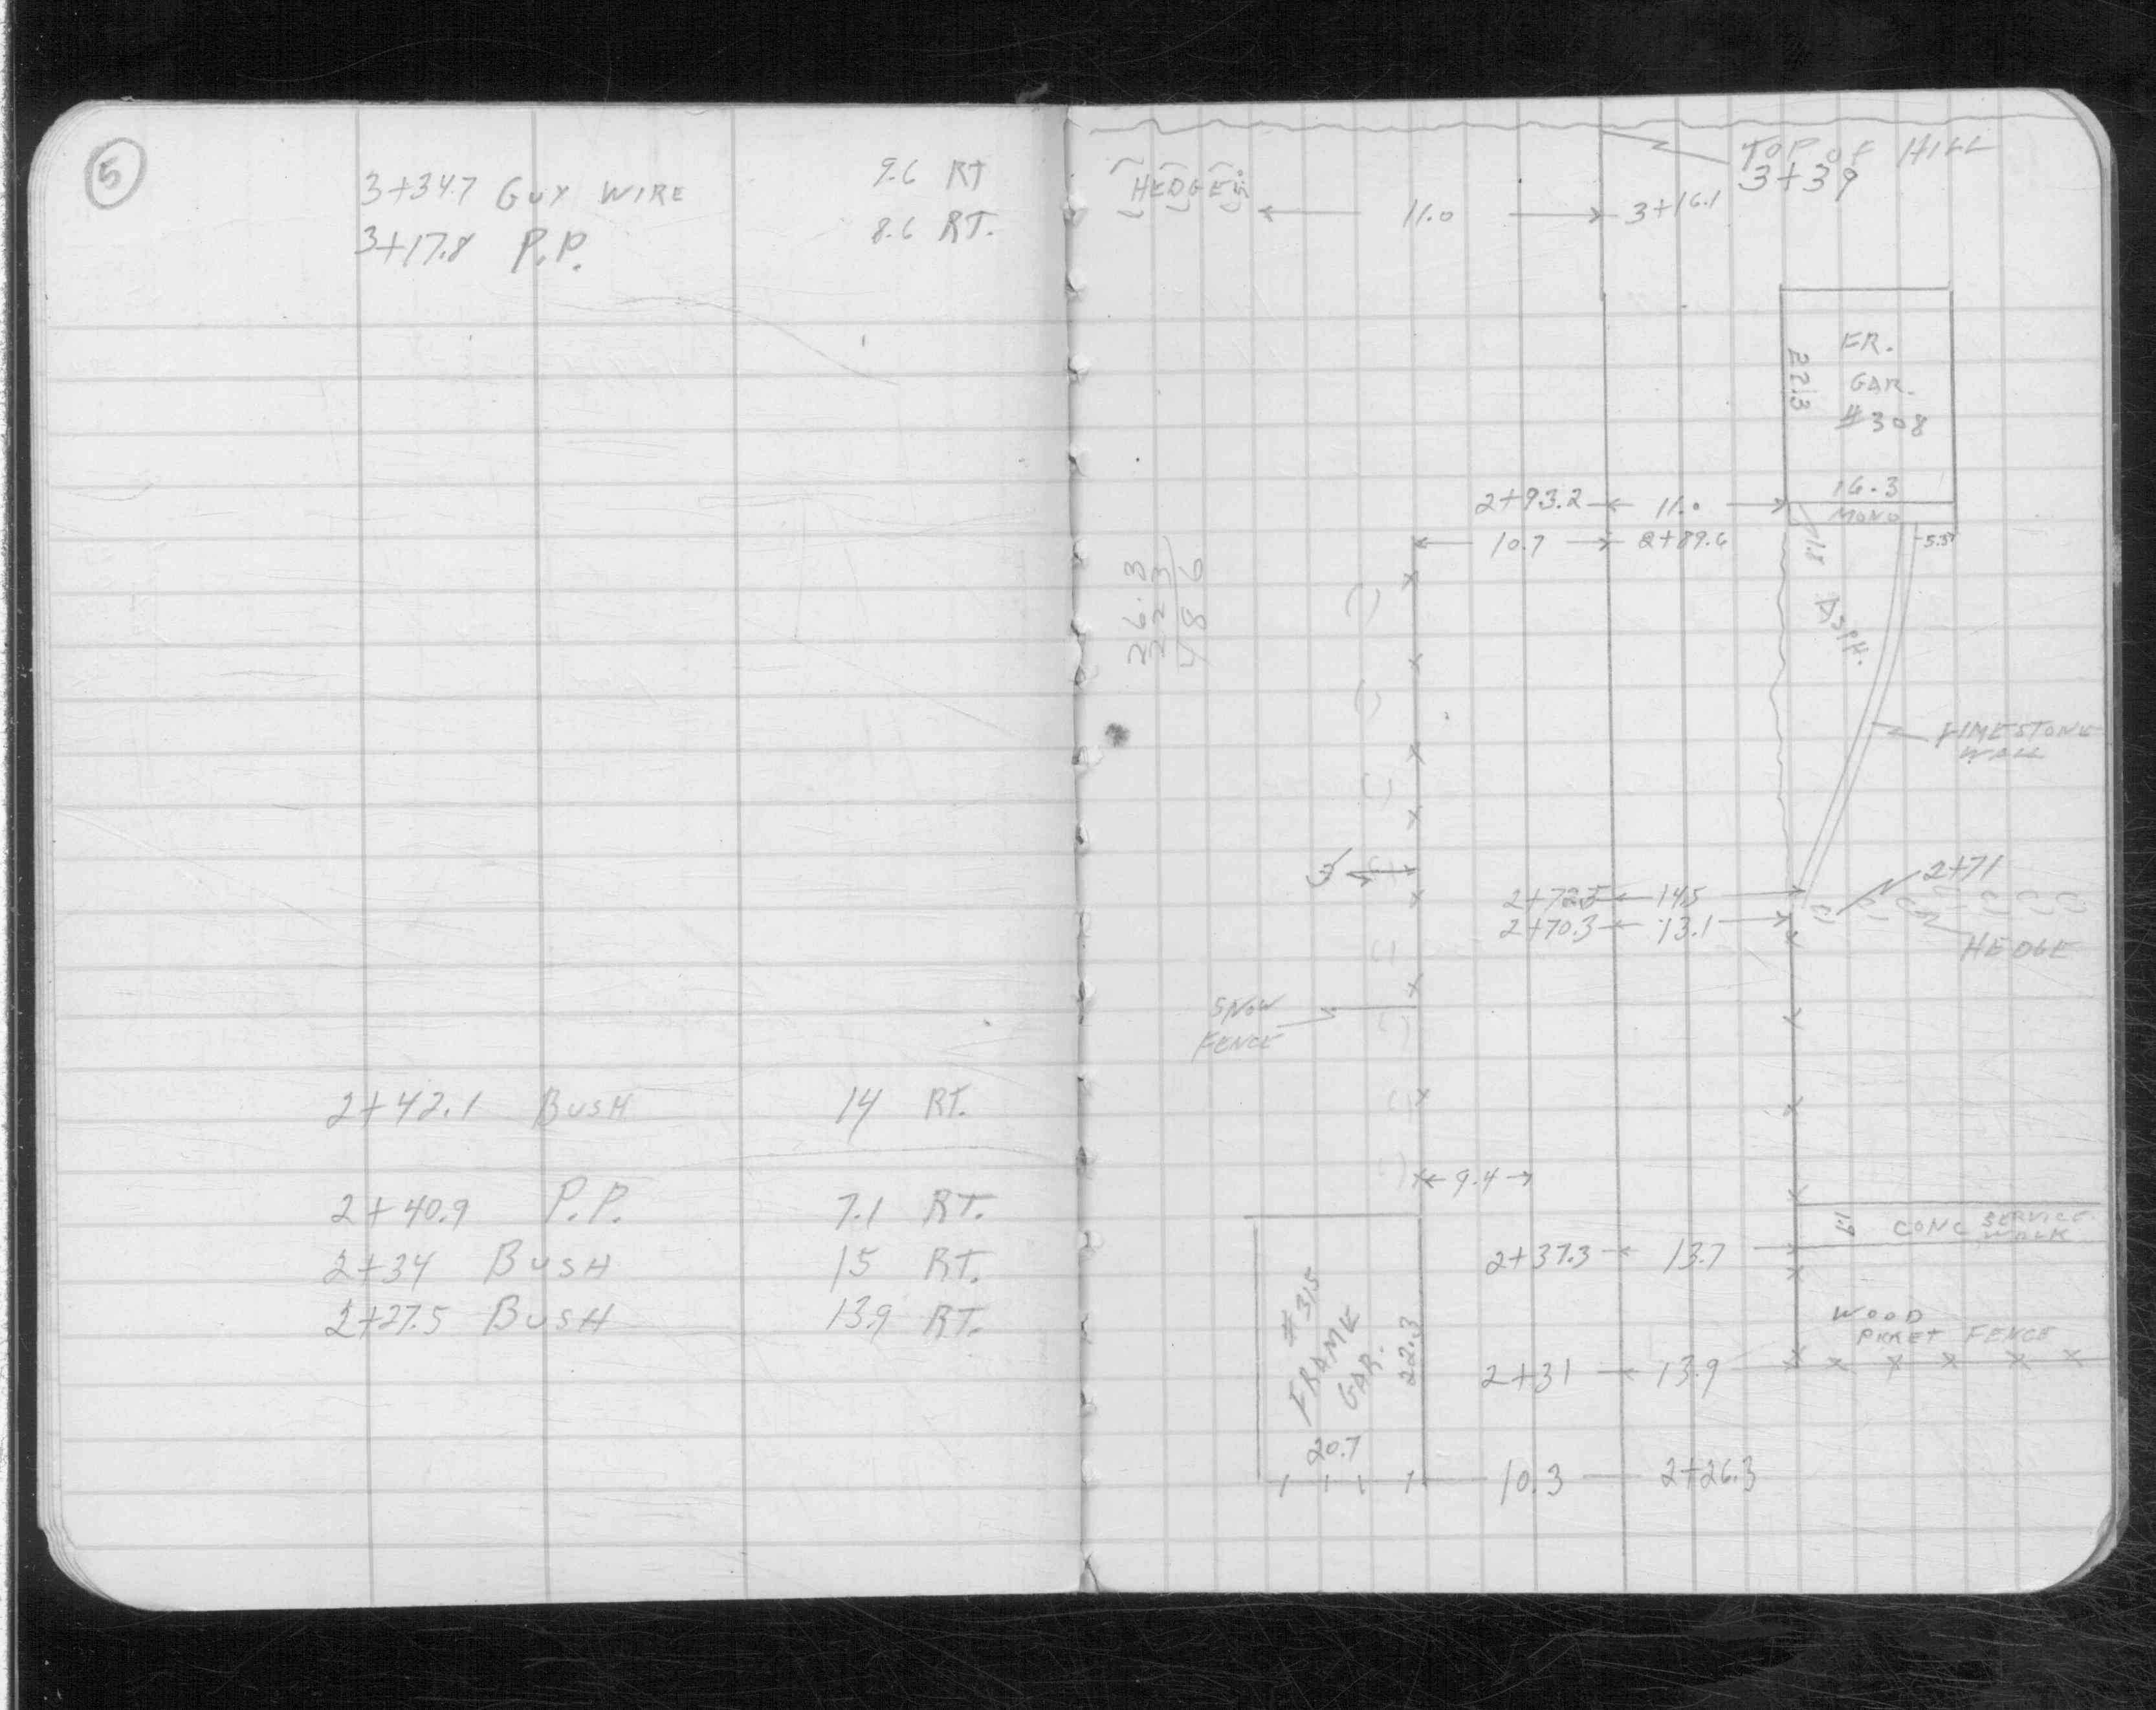 5
3+34.7 GUY WIRE 9.6 RT
3+17.8 P.P. 8.6 RT.
2+42.1 BUSH 14 RT.
2+40.9 P.P. 7.1 RT.
2+34 BUSH 15 RT.
2+27.5 BUSH 13.9 RT.
TOP OF HILL
3+39
HEDGE
11.0 3+16.1
FR.
GAR.
#308
22.3
16.3
MONO
2+93.2 11.0
10.7 2+89.6
1.8
5.5
26.3
22.3
48 6
Asph.
LIMESTONE
WALL
3
2+71
2+72.5 14.5
2+70.3 13.1
HEDGE
SNOW
FENCE
9.4
1.9
CONC SERVICE
WALK
2+37.3 13.7
#315
FRAME
GAR.
22.3
20.7
WOOD
PICKET FENCE
2+31 13.9
10.3 2+26.3